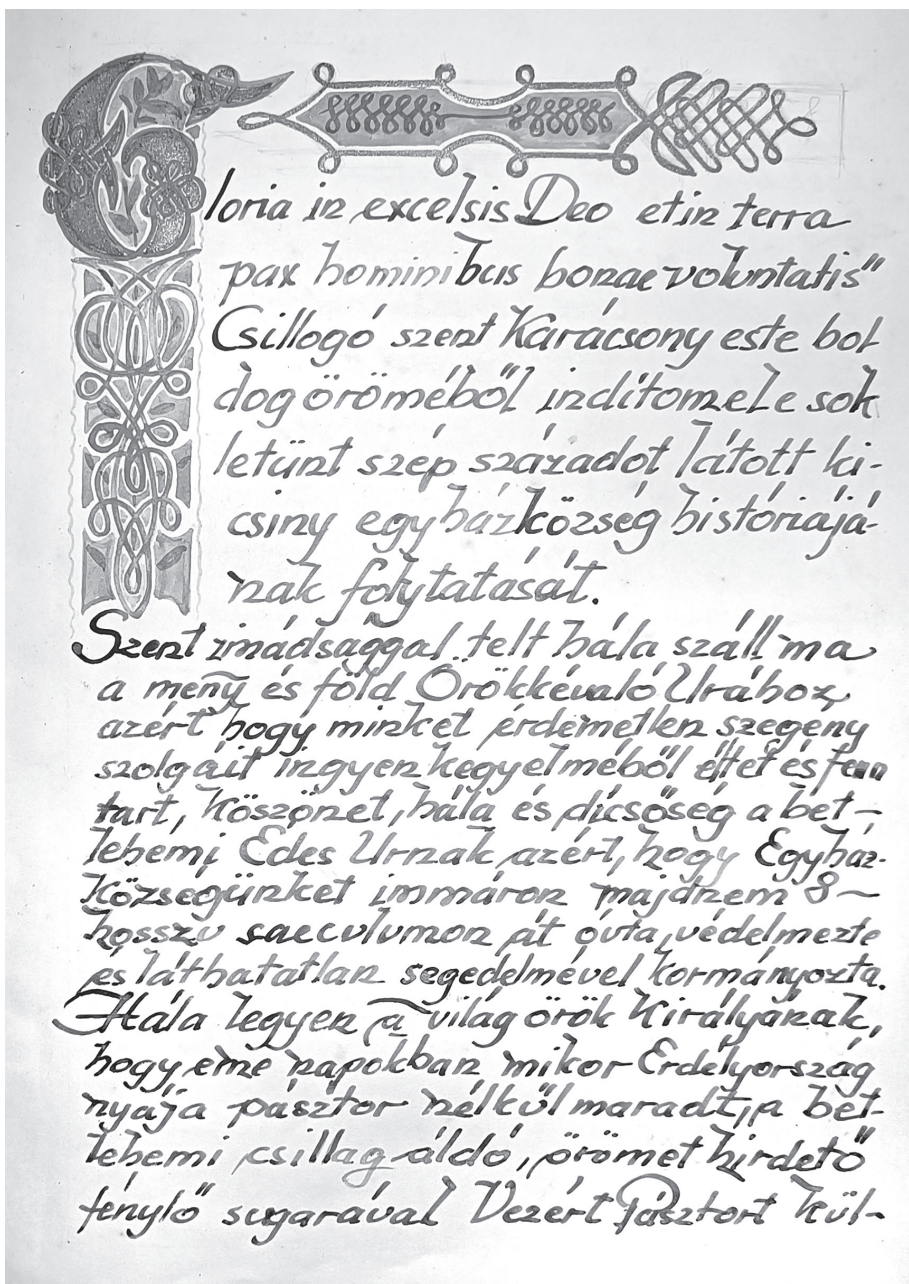 Gloria in excelsis Deo et in terra
pax hominibus bonae voluntatis"
Csillogó szent Karácsony este bol
dog öröméből indítom el e sok
letünt szép századot látott ki-
csiny egyházközség históriájá-
nak folytatását.
Szent imádsággal telt hála száll ma
a meny és föld Örökkévaló Urához,
azért hogy minket érdemetlen szegény
szolgáit ingyen kegyelméből éltet és fenn
tart, Köszönet, hála és dícsőség a bet-
lehemi Édes Urnak azért, hogy Egyház-
községünket immáron majdnem 8-
hosszu saeculumon át óvta, védelmezte
és láthatatlan segedelmével kormányozta.
Hála legyen a világ örök Királyának,
hogy eme napokban mikor Erdélyország
nyája pásztor nélkül maradt, a bet-
lehemi csillag áldó, örömet hirdető
fénylő sugarával Vezért Pásztort kül-